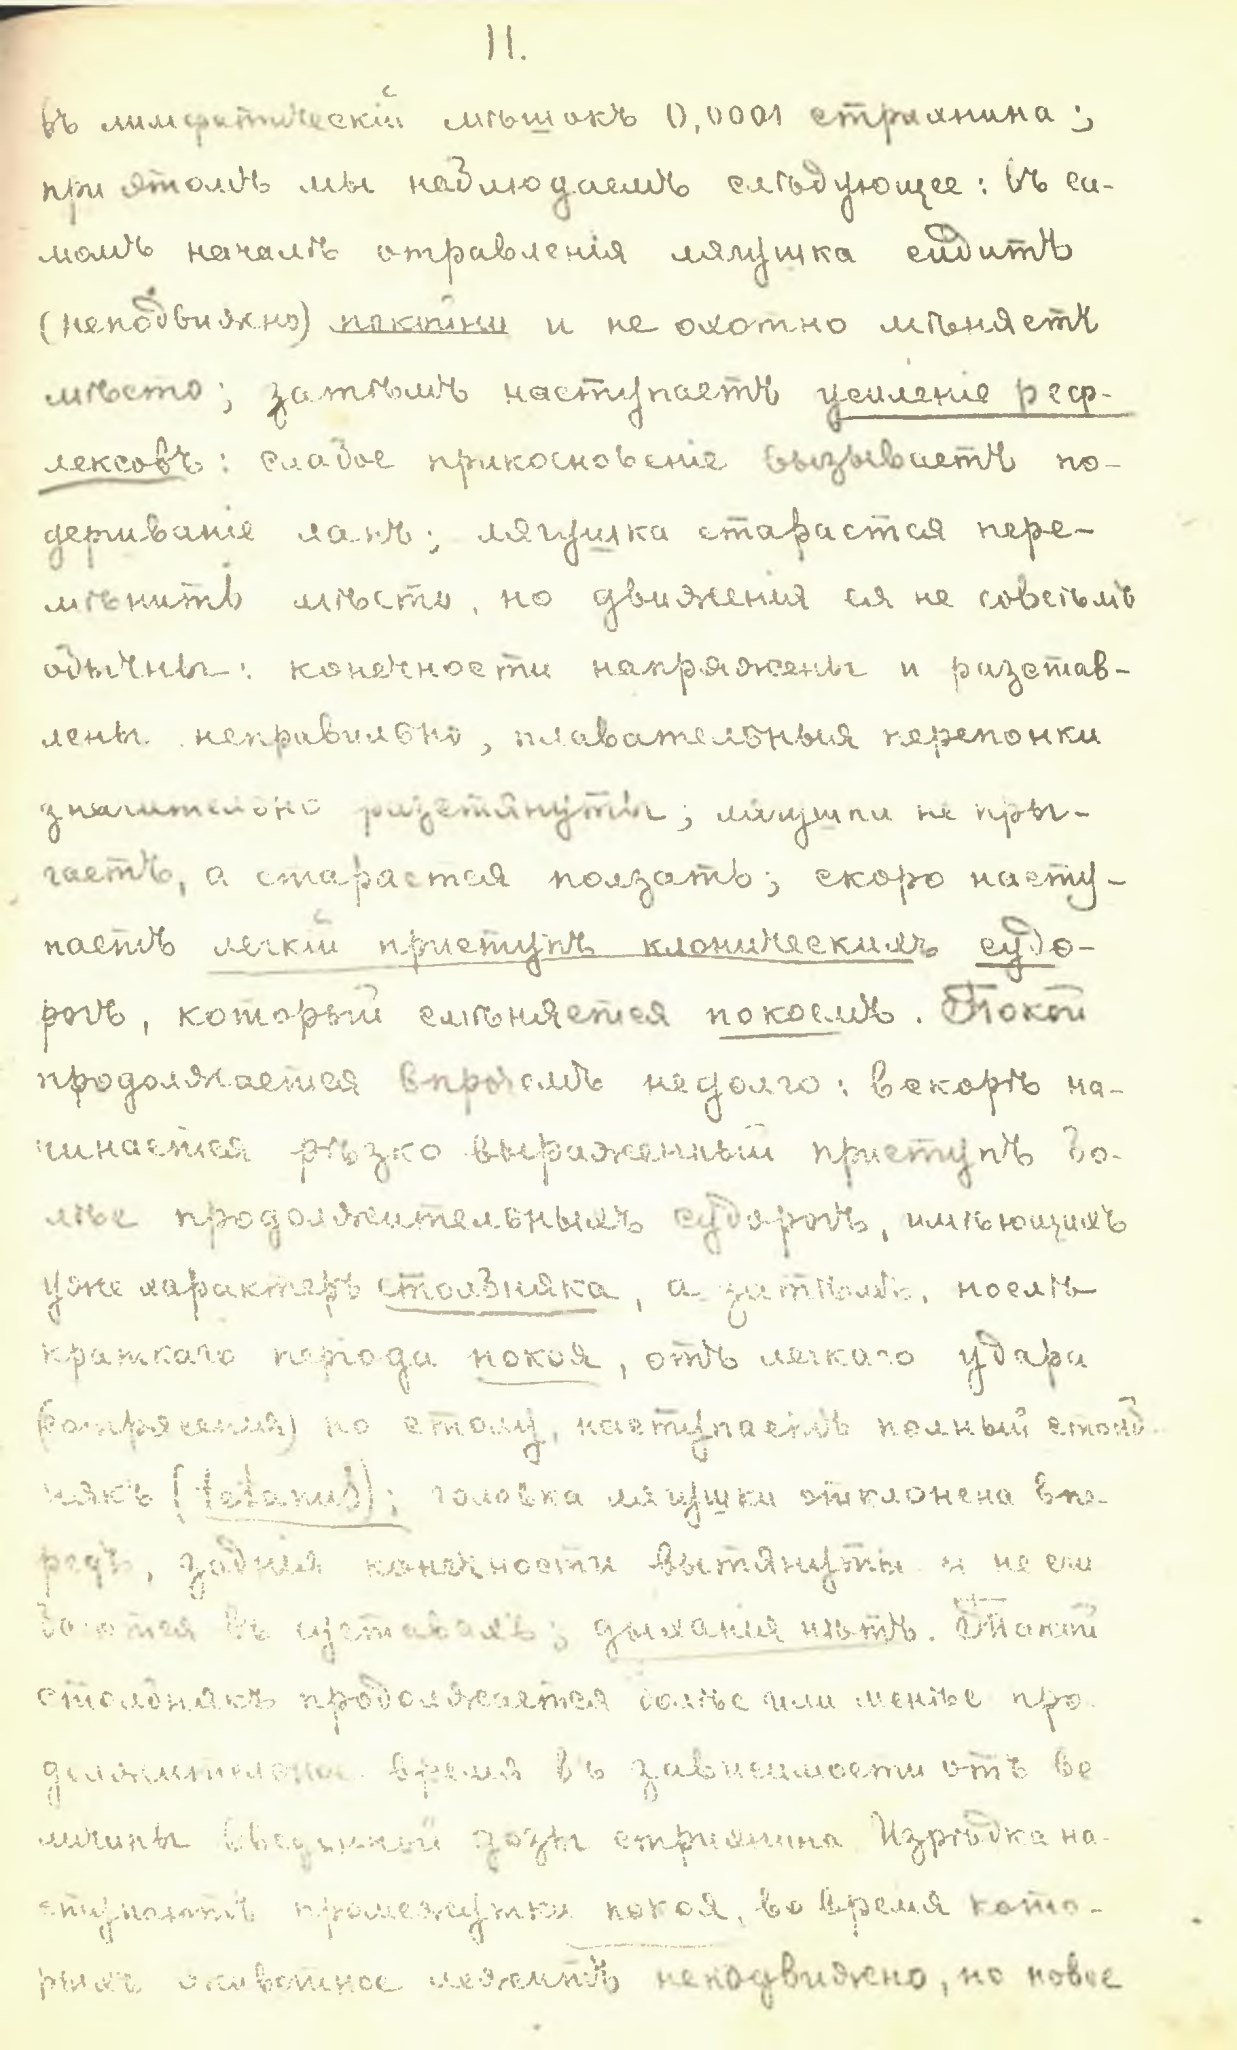 11.
въ лимфатическій мѣшокъ 0,0001 стрихнина;
при этомъ мы наблюдаемъ слѣдующее: въ са-
момъ началѣ отравленія лягушка сидитъ
(неподвижно) покойно и не охотно мѣняетъ
мѣсто; затѣмъ наступаетъ усиленіе реф-
лексовъ: слабое прикосновеніе вызываетъ по-
дергиваніе лапъ; лягушка старается пере-
мѣнить мѣсто, но движенія ея не совсѣмъ
обычны: конечности напряжены и разстав-
лены неправильно, плавательныя перепонки
значительно растянуты; лягушка не пры-
гаетъ, а старается ползать; скоро насту-
паетъ легкій приступъ клоническихъ судо-
рогъ, который смѣняется покоемъ. Покой
продолжается впрочемъ недолго: вскорѣ на-
чинается рѣзко выраженный приступъ бо-
лѣе продолжительныхъ судорогъ, имѣющихъ
уже характеръ столбняка, а затѣмъ, послѣ
краткаго періода покоя, отъ легкаго удара
(сотрясенія) по столу, наступаетъ полный столб-
някъ (tetanus); головка лягушки отклонена впе-
редъ, заднія конечности вытянуты и не сги
баются въ суставахъ; дыханія нѣтъ. Такой
столбнякъ продолжается болѣе или менѣе про
должительное время въ зависимости отъ ве
личины введенной дозы стрихнина. Изрѣдка на-
ступаютъ промежутки покоя, во время кото-
рыхъ животное лежитъ неподвижно, но новое